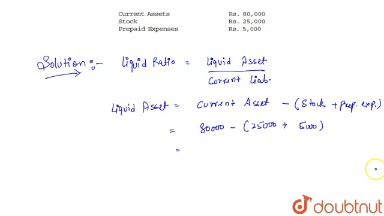 Current Assets Rs. 80,000
Stock Rs. 25,000
Prepaid Expenses Rs. 5,000
Solution :- Liquid Ratio = Liquid Asset
Current Liab.
Liquid Asset = Current Asset - (Stock + Prep. exp.)
= 80000 - (25000 + 5000)
=
doubtnut